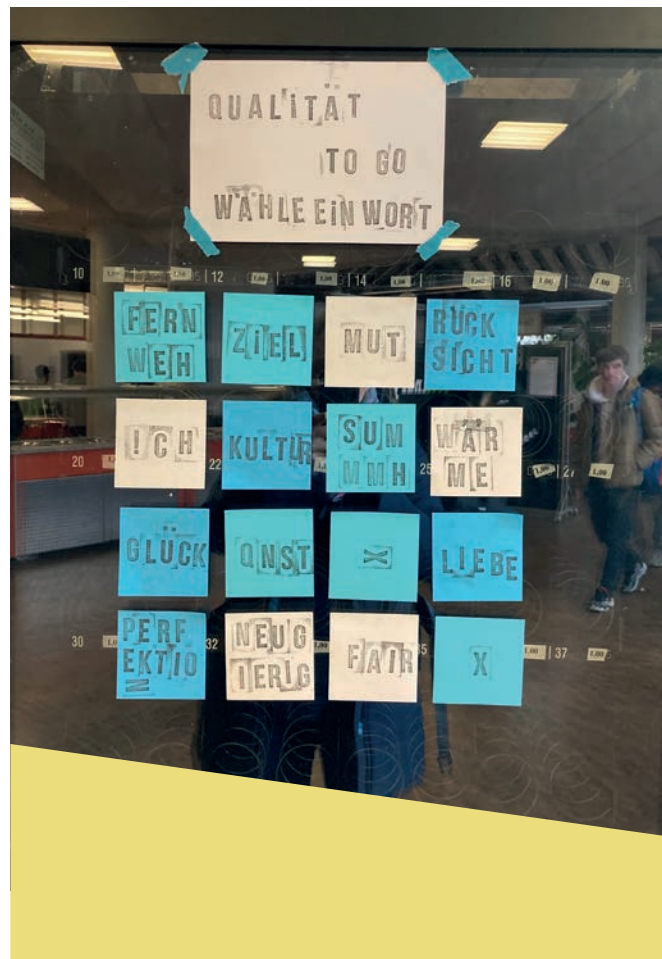 QUALITÄT
TO GO
WÄHLE EIN WORT
10 1,00 1,00 12 1,00 14 1,00 1,00 16 1,00 1,00
FERN
WEH
ZIEL
MUT
RÜCK
SICHT
!CH
KULTUR
SUM
MMH
WÄR
ME
20 22 25 1,00 1,00
GLÜCK
QNST
X
LIEBE
PERF
EKTIO
N
NEUG
IERIG
FAIR
X
30 32 1,00 35 1,00 37 1,00